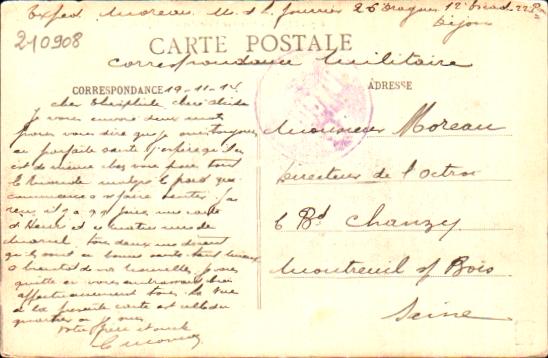 Exped Moreau M. d. L. fourrier 26 Dragons 12e Escad
Dijon
210908
CARTE POSTALE
Correspondance Militaire
CORRESPONDANCE 19-11-14
ADRESSE
Cher Théophile Cher
Je vous envoie deux mots
pour vous dire que je suis toujours
en parfaite santé j'espère qu'il en
est de même chez vous pour tout
le monde malgré le froid qui
commence à se faire sentir J'ai
reçu il y a jours une carte
d'Henri et ce matin une de
Marcel tous deux me disent
qu'ils sont en bonne santé
à bientôt de vos nouvelles, je vous
quitte en vous embrassant bien
affectueusement tous. La vue
de la présente carte est celle du
quartier où je suis
Votre frère et oncle
Monsieur Moreau
Directeur de l'Octroi
6 Bd Chanzy
Montreuil s/ Bois
Seine